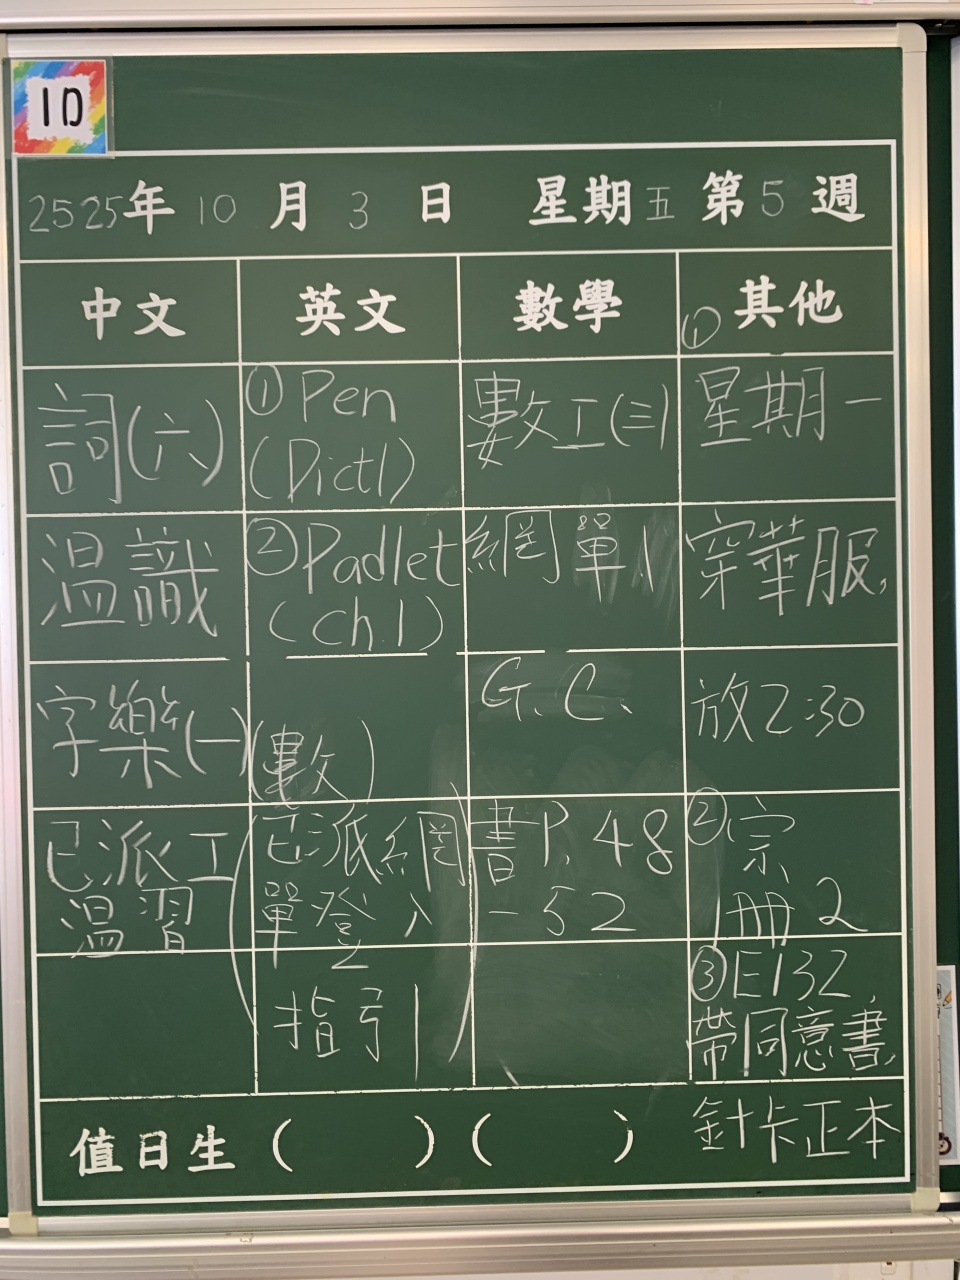 1D
2525年 10 月 3 日 星期五 第5週
中文
英文
數學
①其他
詞(六)
①Pen
(Dict1)
數工(三)
星期一
溫識
②Padlet
(Ch.1)
網單1
穿華服,
字樂(一)
(數)
G.C.
放2:30
已派工
溫習
(已派網
單登入
指引)
書P.48
-52
②宗
冊2
③E132
帶同意書,
針卡正本
值日生 ( ) ( )